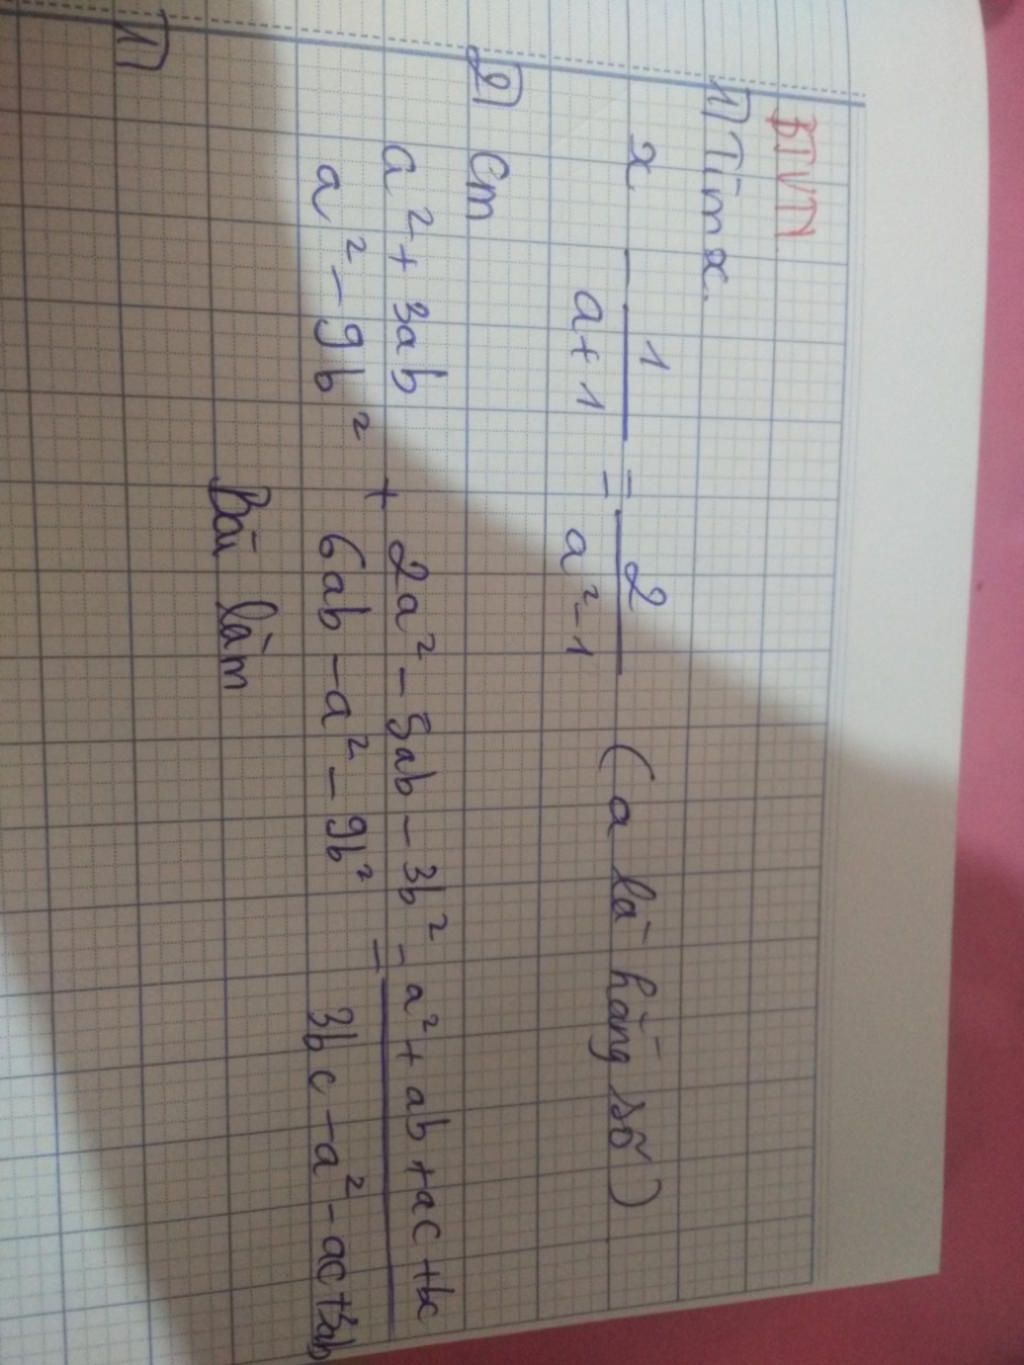 BTVN
1) Tìm x.
x - 1/(a+1) = 2/(a²-1) (a là hằng số)
2) Cm
(a² + 3ab)/(a² - 9b²) + (2a² - 5ab - 3b²)/(6ab - a² - 9b²) = (a² + ab + ac + bc)/(3bc - a² - ac + 3ab)
Bài làm
1)